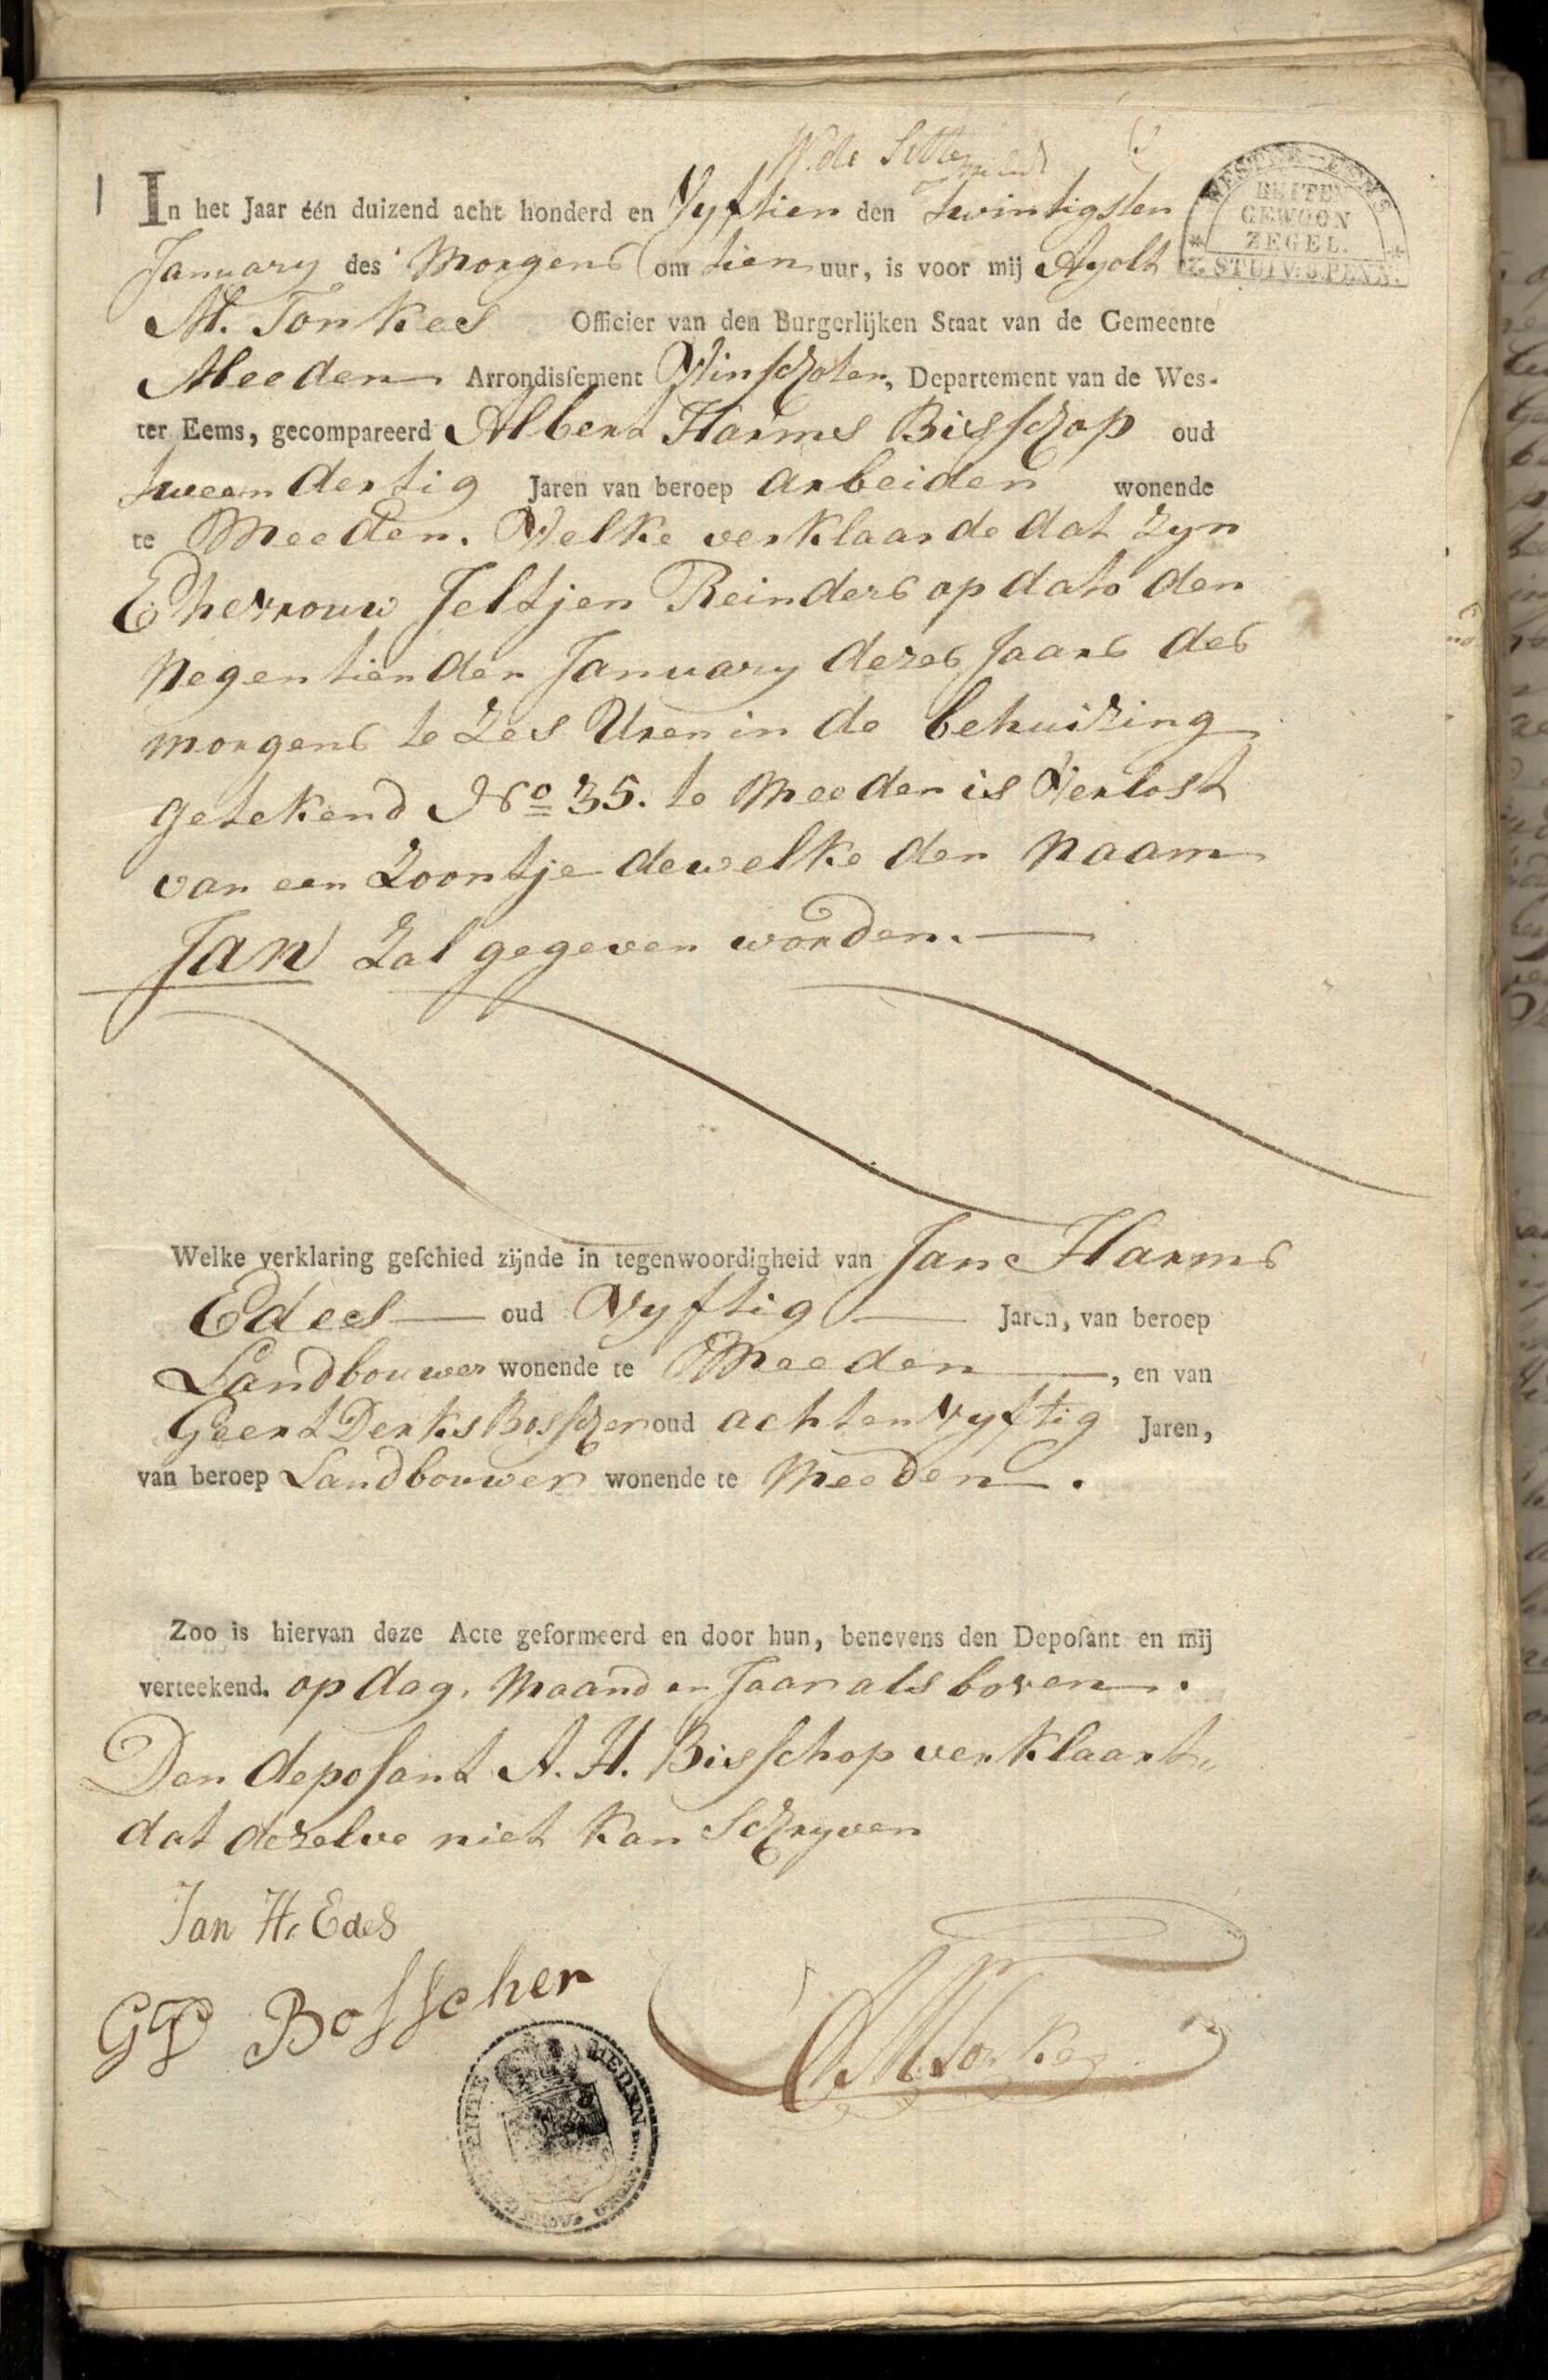 W. de Sitter
WESTER-EEMS
BUITEN
GEWOON
ZEGEL.
STUIV. PENN.
1
In het Jaar één duizend acht honderd en Vyftien den Twintigsten
January des Morgens om tien uur, is voor mij Ayolt
M. Tonkes Officier van den Burgerlijken Staat van de Gemeente
Meeden Arrondisſement Winschoten, Departement van de Wes-
ter Eems, gecompareerd Albert Harms Bisschop oud
tweeen dertig Jaren van beroep arbeider wonende
te Meeden. Welke verklaarde dat zyn
Ehevrouw Jeltjen Reinders op dato den
Negentienden January dezes Jaars des
morgens te Zes Uren in de behuizing
getekend No 35. te Meeden is Verlost
van een Zoontje dewelke den Naam
Jan Zal gegeven worden.
Welke verklaring geſchied zijnde in tegenwoordigheid van Jan Harms
Edees oud Vyftig Jaren, van beroep
Landbouwer wonende te Meeden, en van
Geert Derks Bosscher oud achten Vyftig Jaren,
van beroep Landbouwer wonende te Meeden.
Zoo is hiervan deze Acte geformeerd en door hun, benevens den Depoſant en mij
verteekend. op dag, Maand en Jaar als boven.
Den deposant A. H. Bisschop verklaart
dat dezelve niet kan Schryven
Jan H. Edes
GD Bosscher
AMTonkes
MEDEN